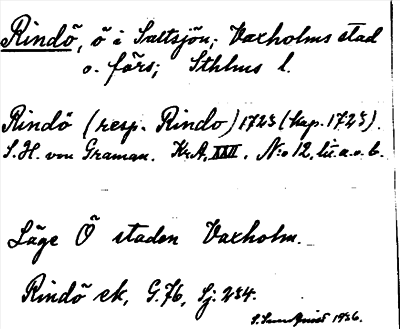 Rindö, ö i Saltsjön; Vaxholms stad
o. förs; Sthlms l.
Rindö (resp. Rindo) 1723 (kop. 1723).
S. H. von Graman. Kr.A, XXII. No 12, lit. a. o. b.
Läge Ö staden Vaxholm.
Rindö ek, G.76, Sj. 234.
1936.